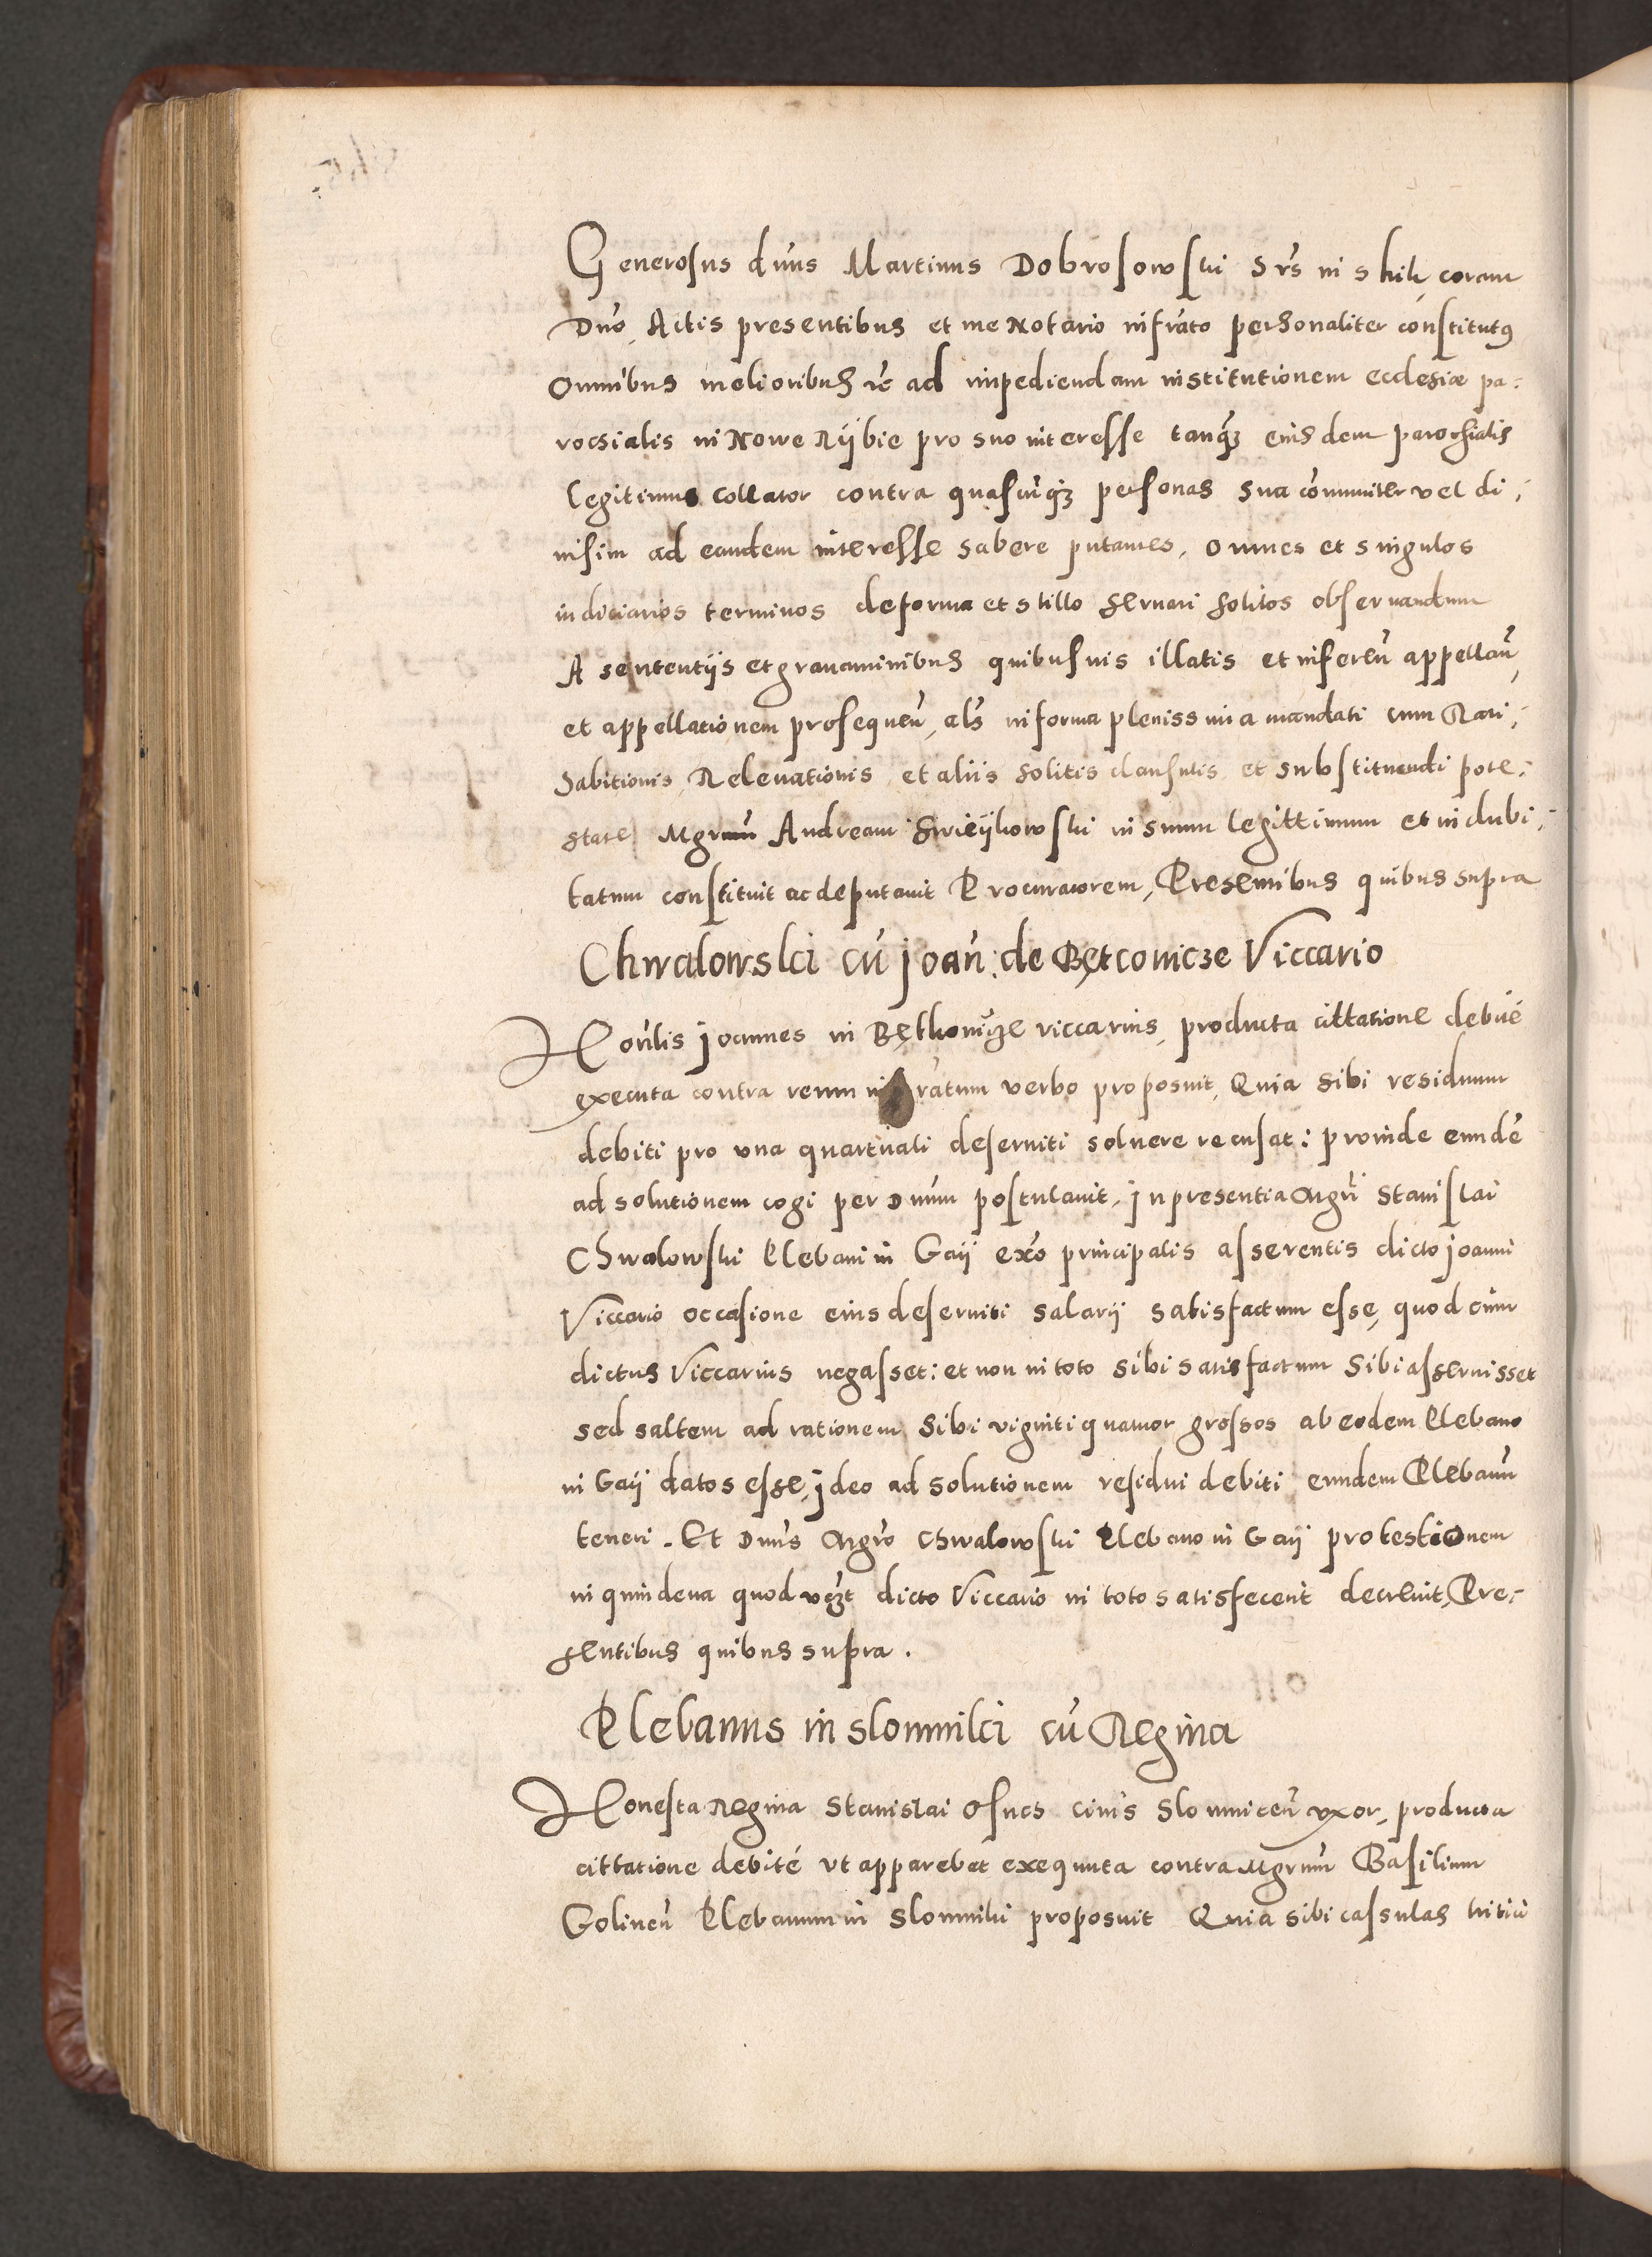 Generosus dn̄us Martinus Dobrosowski hr̄s in s kik, coram
Dn̄o, Actis presentibus et me Notario infra̅to personaliter constitut9
Omnibus melioribus rc̄ ad impediendam institutionem ecclesiæ pa-
rochialis in Nowe Rÿbie pro suo interesse tanq̄ꝫ eiusdem parochialis
legitimus collator contra quascūqꝫ personas sua com̄uniter vel di-
uisim ad eandem interesse habere putantes, omnes et singulos
iudiciarios terminos de forma et stillo seruari solitos obseruandum
A sententÿs et grauaminibus quibusuis illatis et inferen̄ appellan̄
et appellationem prosequen̄, als̄ in forma plenissima mandati cum Rati-
habitionis, Relevationis et aliis solitis clausulis et substituendi pote-
state Mgrum̄ Andream Swieÿkowski in suum legittimum et indubi-
tatum constituit ac deputauit Procuratorem, Presentibus quibus supra
Chwalowski cū joan̄: de Bętconicze Viccario
Hon̄lis joannes in Bęthonicze viccarius, producta cittatione debité
executa contra reum infra̅tum verbo proposuit, Quia sibi residuum
debiti pro vna quartuali deseruiti soluere recusat: proinde eundē
ad solutionem cogi per Dnūm postulauit, jn presentia Mgrī Stanislai
Chwalowski Plebani in Gaÿ exo̅ principalis asserentis dicto joanni
Viccario occasione eius deseruiti salarÿ satisfactum esse, quod cum
dictus Viccarius negasset: et non in toto sibi satisfactum sibi asseruisset
sed saltem ad rationem sibi viginti quatuor grossos ab eodem Plebano
in Gaÿ datos esse, jdeo ad solutionem residui debiti eundem Plebanū
teneri. Et Dnūs Mgrō Chwalowski Plebano in Gaÿ protestionem
in quindena quod vcꝫt dicto Viccario in toto satisfecerit decreuit, Pre-
sentibus quibus supra.
Plebanus in Slomniki cū Regina
Honesta Regina Stanislai Osues ciuis Slomnicen̄ vxor, producta
cittatione debité vt apparebat exequuta contra Mgrum̄ Basilium
Golinen̄ Plebanum in Slomniki proposuit Quia sibi cassulas tritici